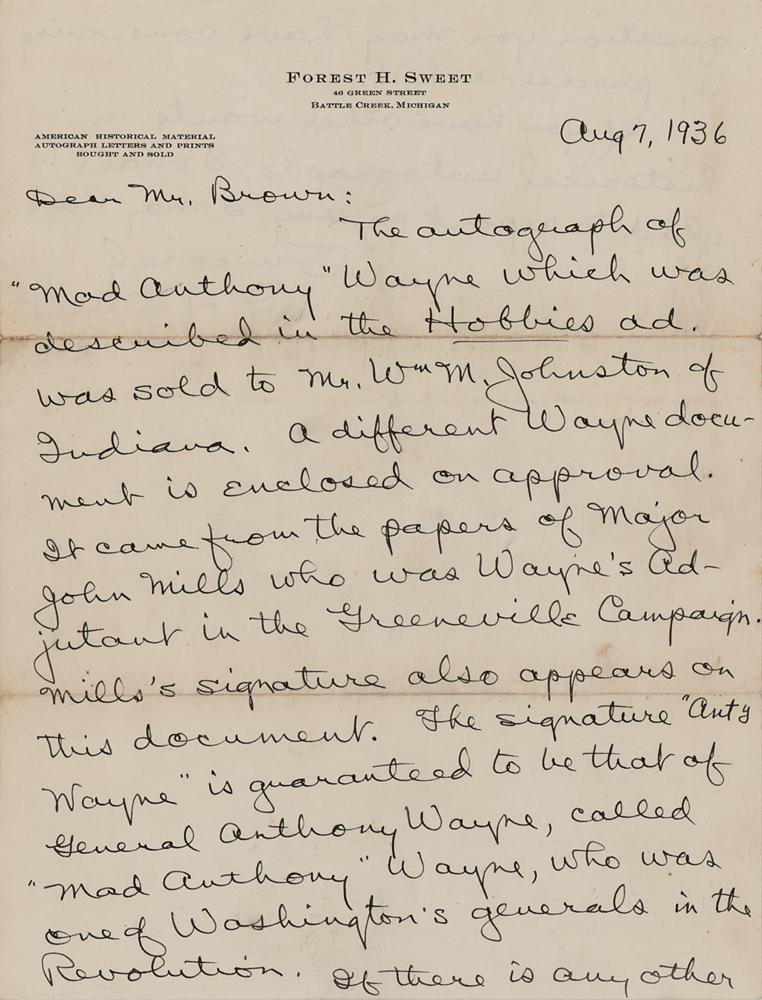 FOREST H. SWEET
46 GREEN STREET
BATTLE CREEK, MICHIGAN
AMERICAN HISTORICAL MATERIAL
AUTOGRAPH LETTERS AND PRINTS
BOUGHT AND SOLD
Aug 7, 1936
Dear Mr. Brown:
The autograph of
"Mad Anthony" Wayne which was
described in the Hobbies ad.
was sold to Mr. Wm M. Johnston of
Indiana. A different Wayne docu-
ment is enclosed on approval.
It came from the papers of Major
John Mills who was Wayne's Ad-
jutant in the Greeneville Campaign.
Mills's signature also appears on
this document. The signature "Anty
Wayne" is guaranteed to be that of
General Anthony Wayne, called
"Mad Anthony" Wayne, who was
one of Washington's generals in the
Revolution. If there is any other